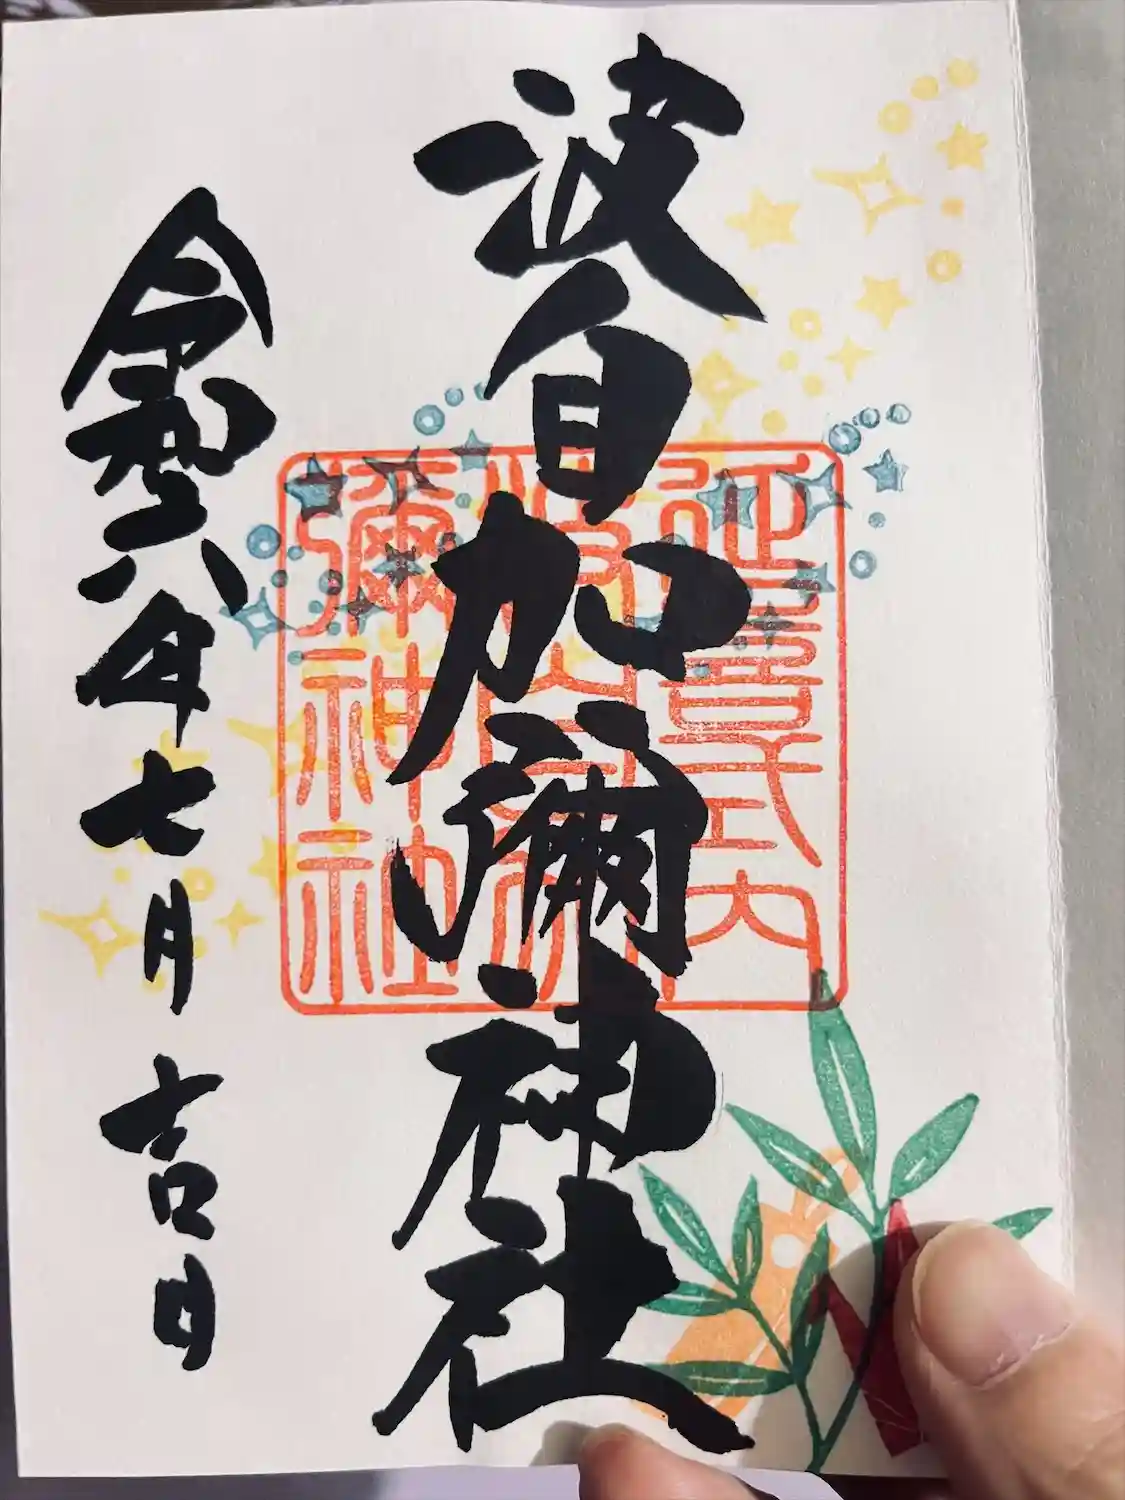 波自加彌神社
令和六年七月吉日
延喜式内
波自加
彌神社